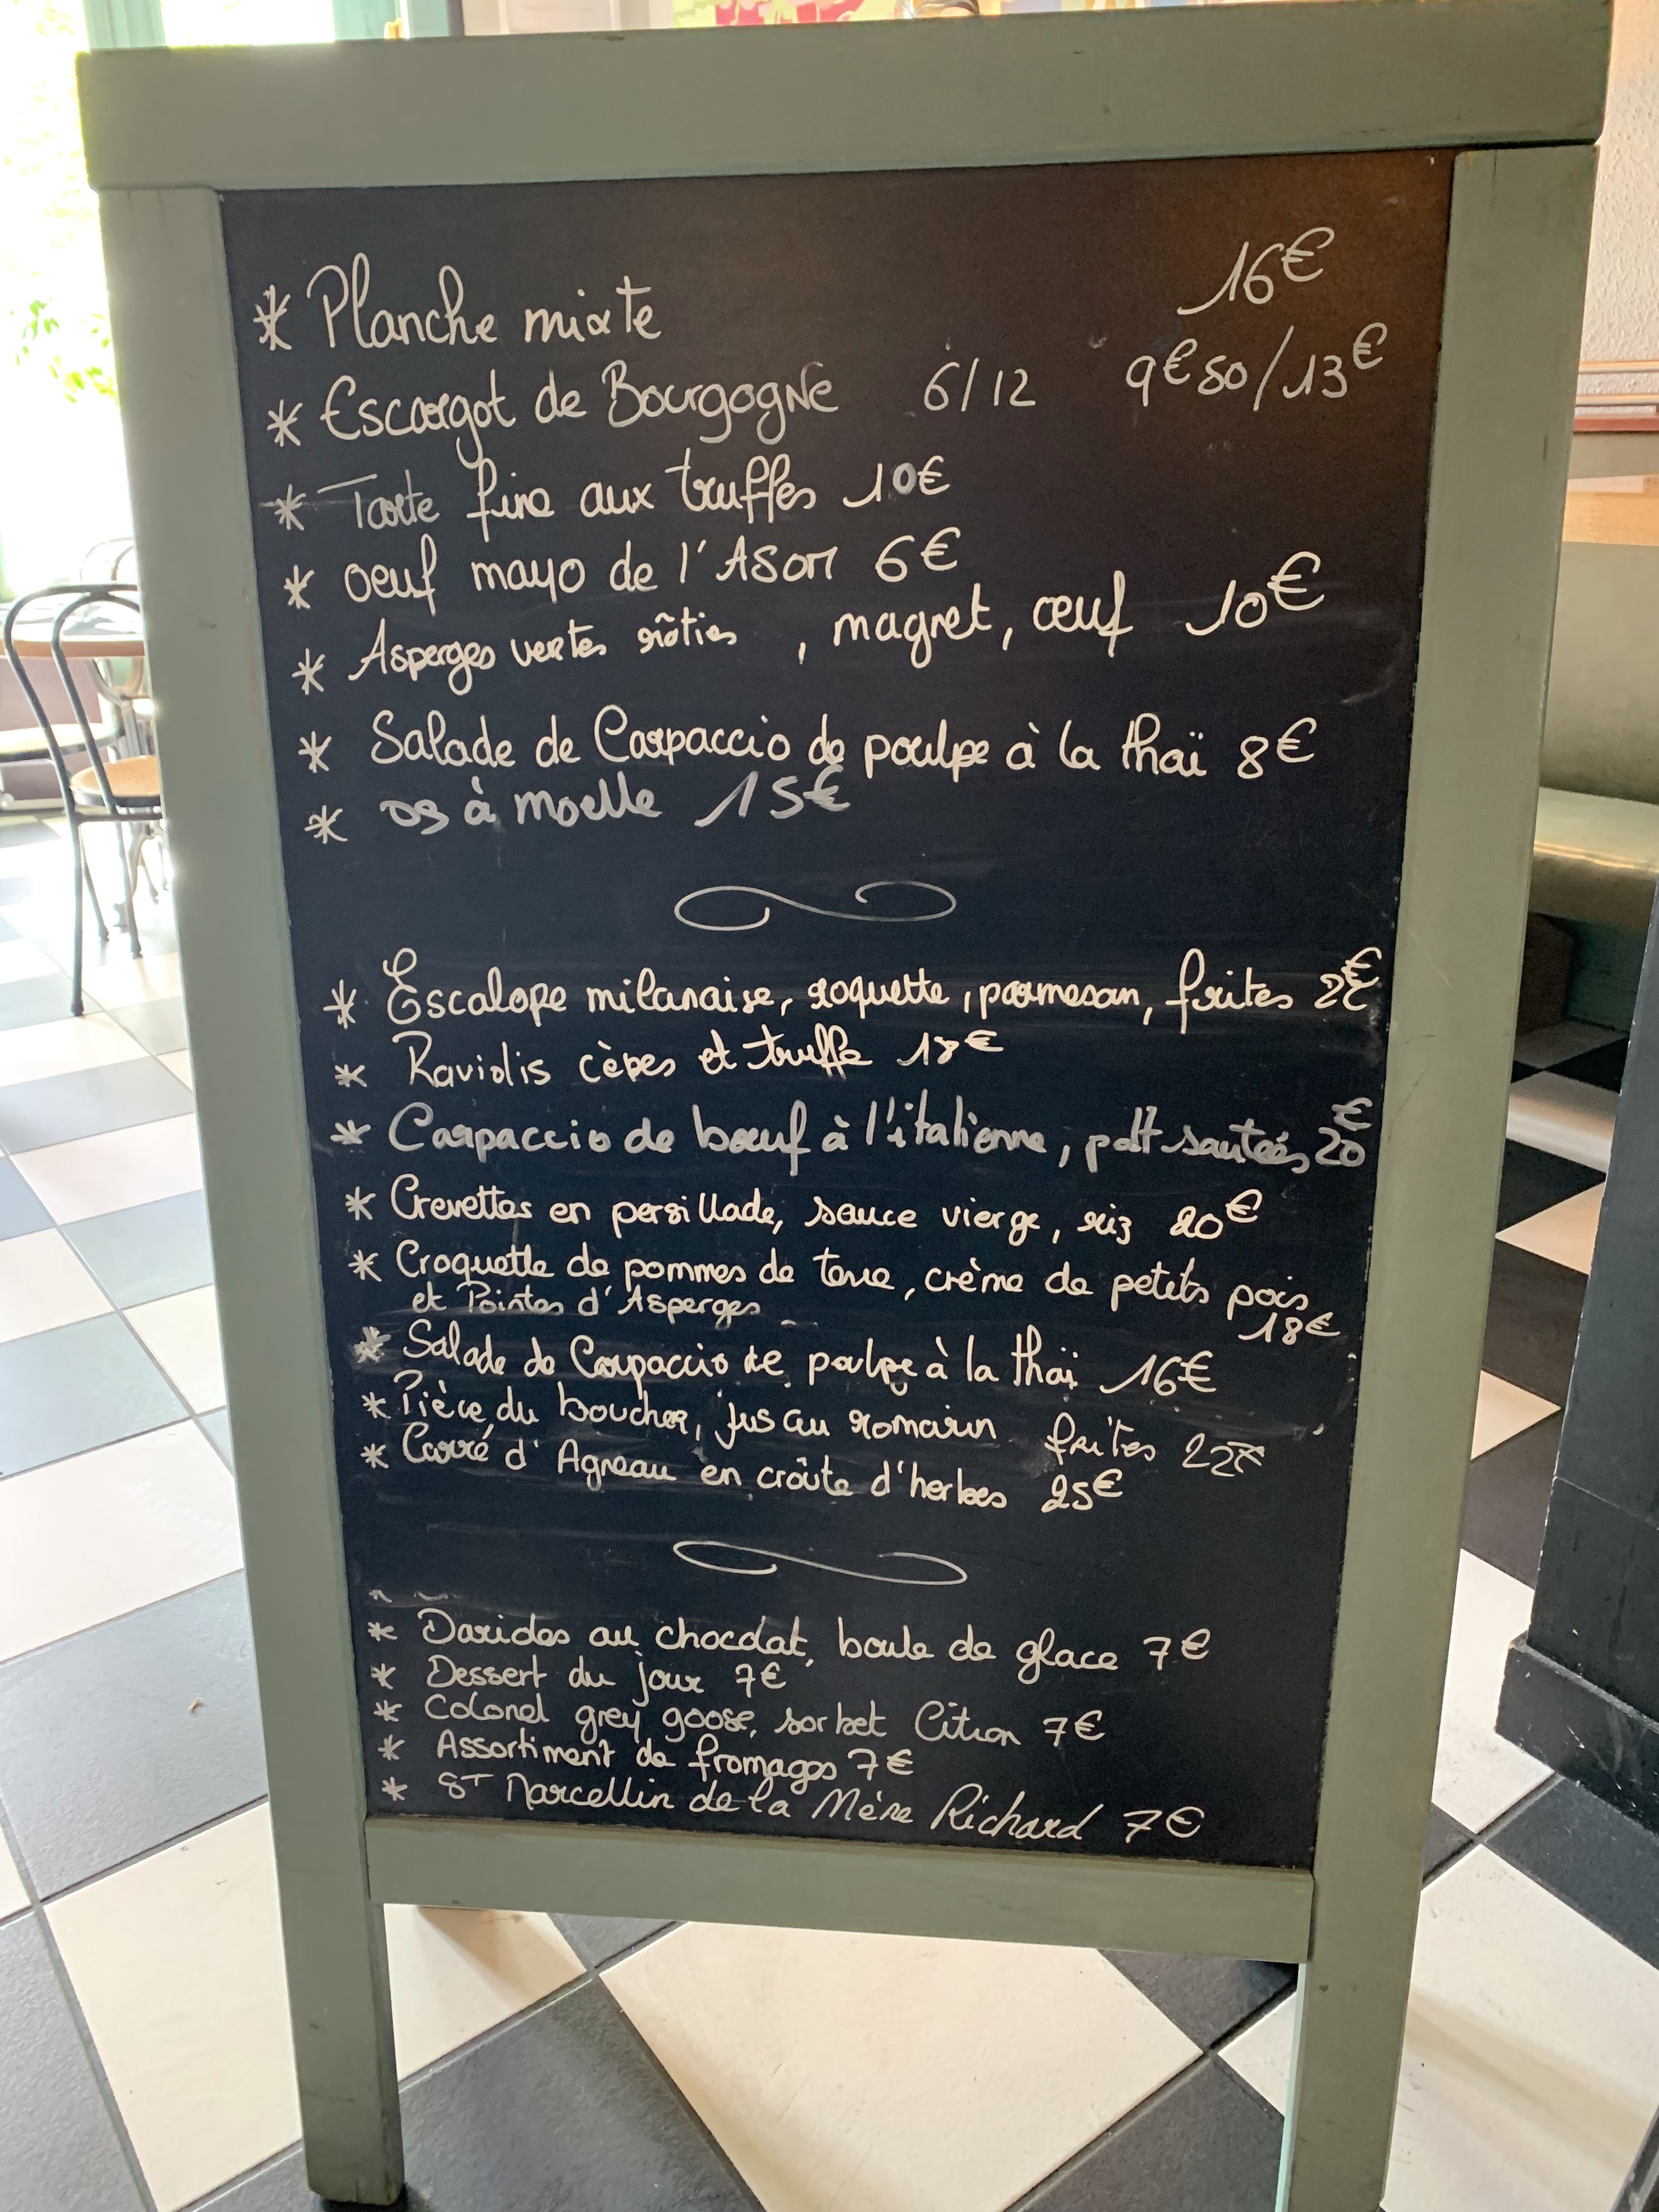 * Planche mixte 16€
* Escargot de Bourgogne 6/12 9€50/13€
* Tarte fine aux truffes 10€
* oeuf mayo de l'ASOM 6€
* Asperges vertes rôties , magret, œuf 10€
* Salade de Carpaccio de poulpe à la thaï 8€
* os à moelle 15€
* Escalope milanaise, roquette, parmesan, frites
* Raviolis cèpes et truffe 18€
* Carpaccio de bœuf à l'italienne, pdt sautées 20€
* Crevettes en persillade, sauce vierge, riz 20€
* Croquette de pommes de terre, crème de petits pois
et Pointes d'Asperges 18€
* Salade de Carpaccio de poulpe à la thaï 16€
* Pièce du boucher, jus au romarin frites 22€
* Carré d'Agneau en croûte d'herbes 25€
* Darides au chocolat, boule de glace 7€
* Dessert du jour 7€
* Colonel grey goose, sorbet Citron 7€
* Assortiment de fromages 7€
* ST Marcellin de la Mère Richard 7€